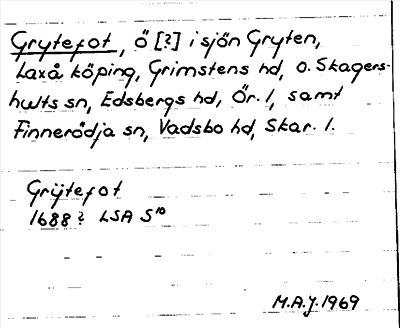 Grytefot, ö [?] i sjön Gryten,
Laxå köping, Grimstens hd, o. Skagers-
hults sn, Edsbergs hd, Ör. l, samt
Finnerödja sn, Vadsbo hd, Skar. l.
Grÿtefot
1688? LSA S¹⁰
M.A.J. 1969